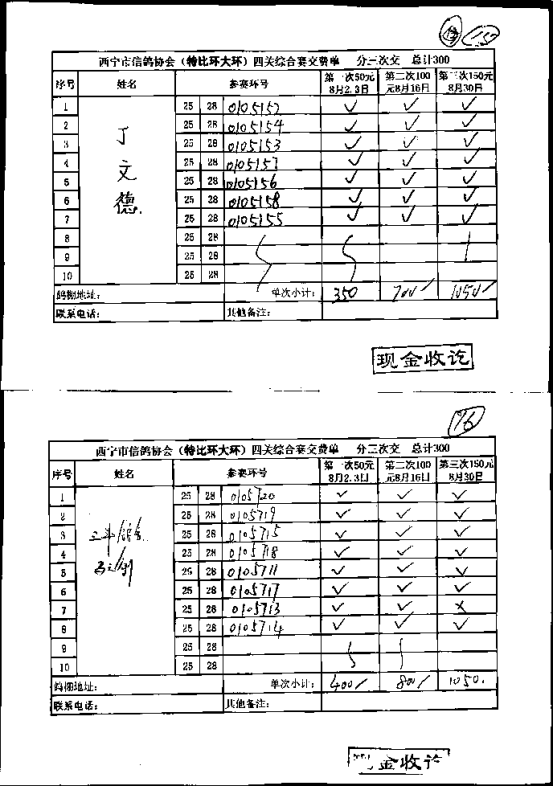 15
西宁市信鸽协会（特比环大环）四关综合赛交费单 分三次交 总计300
序号 姓名 参赛环号 第一次50元8月2.3日 第二次100元8月16日 第三次150元8月30日
1 25 28 0105152 ✓ ✓ ✓
2 25 28 0105154 ✓ ✓ ✓
3 丁 25 28 0105153 ✓ ✓ ✓
4 文 25 28 0105157 ✓ ✓ ✓
5 德 25 28 0105156 ✓ ✓ ✓
6 25 28 0105158 ✓ ✓ ✓
7 25 28 0105155 ✓ ✓ ✓
8 25 28
9 25 28
10 25 28
鸽棚地址： 单次小计： 350 700 1050
联系电话： 其他备注：
现金收讫
76
西宁市信鸽协会（特比环大环）四关综合赛交费单 分三次交 总计300
序号 姓名 参赛环号 第一次50元8月2.3日 第二次100元8月16日 第三次150元8月30日
1 25 28 0105720 ✓ ✓ ✓
2 25 28 0105719 ✓ ✓ ✓
3 25 28 0105715 ✓ ✓ ✓
4 25 28 0105718 ✓ ✓ ✓
5 25 28 0105711 ✓ ✓ ✓
6 25 28 0105717 ✓ ✓ ✓
7 25 28 0105713 ✓ ✓ ×
8 25 28 0105714 ✓ ✓ ✓
9 25 28
10 25 28
鸽棚地址： 单次小计： 400 800 1050.
联系电话： 其他备注：
现金收讫